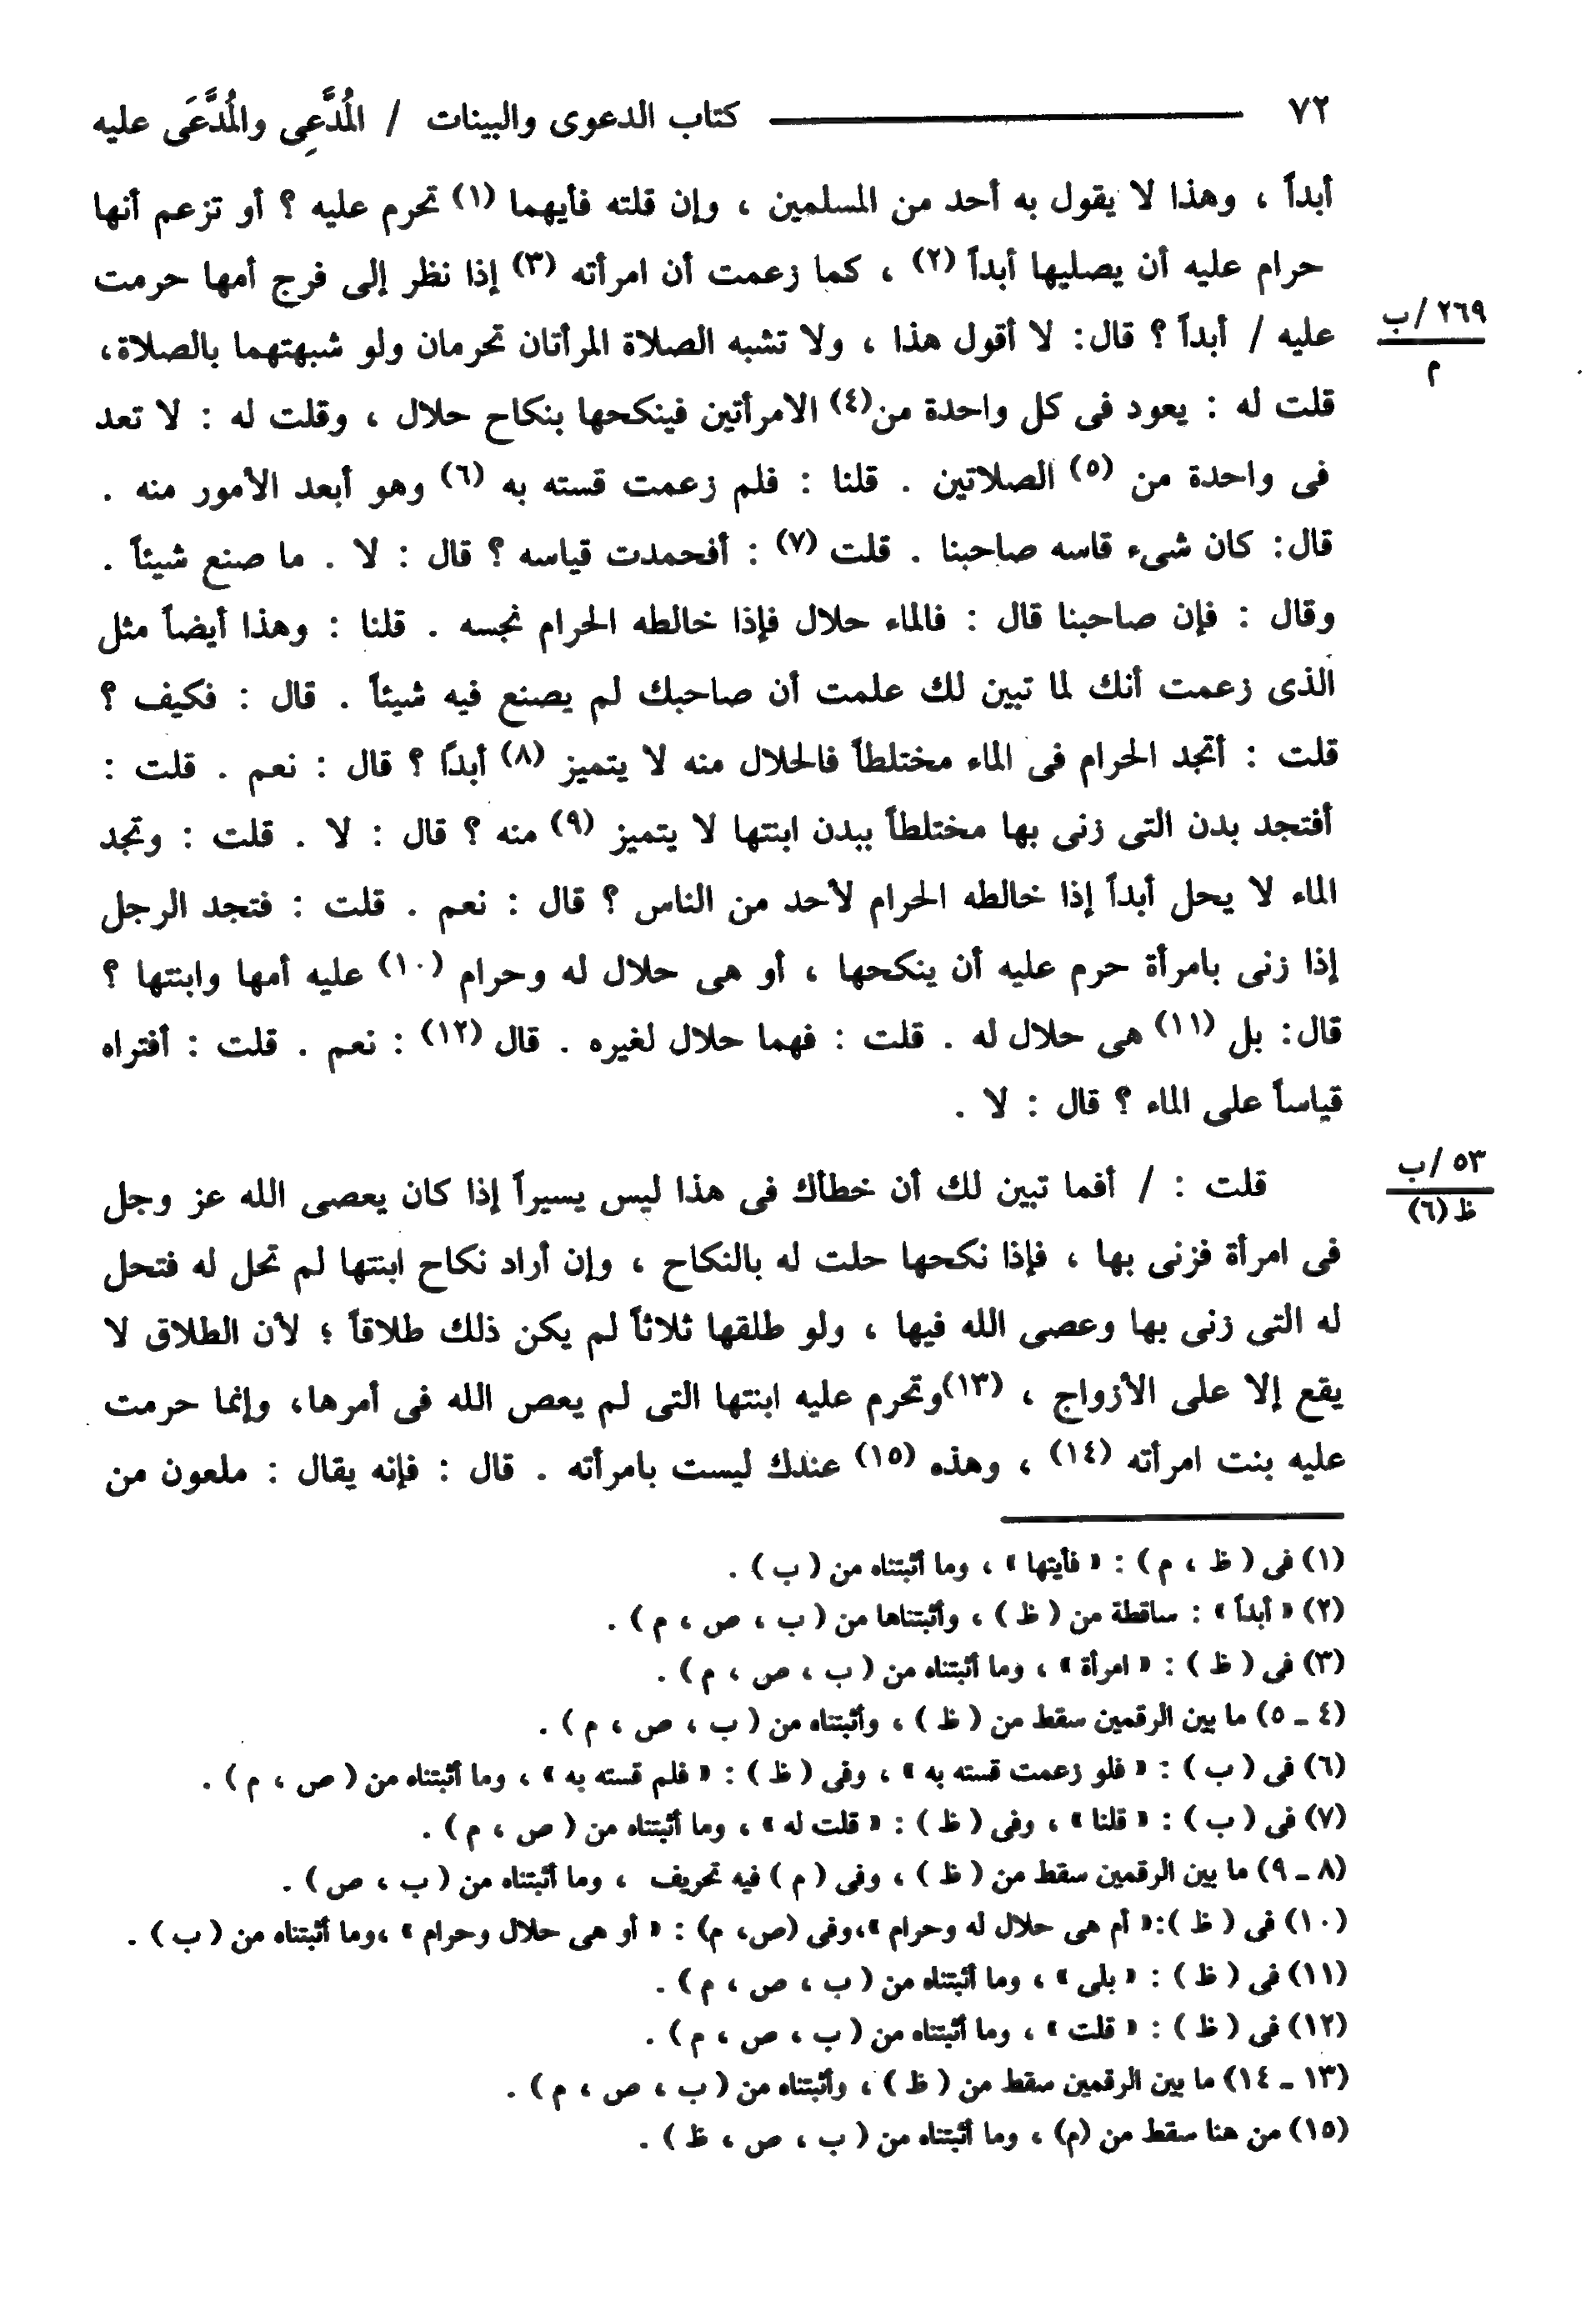 ٧٢ كتاب الدعوى والبينات / المُدَّعِى والمُدَّعَى عليه
أبداً ، وهذا لا يقول به أحد من المسلمين ، وإن قلته فأيهما (١) تحرم عليه ؟ أو تزعم أنها
حرام عليه أن يصليها أبداً (٢) ، كما زعمت أن امرأته (٣) إذا نظر إلى فرج أمها حرمت
عليه / أبداً ؟ قال: لا أقول هذا ، ولا تشبه الصلاة المرأتان تحرمان ولو شبهتهما بالصلاة،
٢٦٩/ب
م
قلت له : يعود فى كل واحدة من(٤) الامرأتين فينكحها بنكاح حلال ، وقلت له : لا تعد
فى واحدة من (٥) الصلاتين . قلنا : فلم زعمت قسته به (٦) وهو أبعد الأمور منه .
قال: كان شىء قاسه صاحبنا . قلت (٧) : أفحمدت قياسه ؟ قال : لا . ما صنع شيئاً .
وقال : فإن صاحبنا قال : فالماء حلال فإذا خالطه الحرام نجسه . قلنا : وهذا أيضاً مثل
الذى زعمت أنك لما تبين لك علمت أن صاحبك لم يصنع فيه شيئاً . قال : فكيف ؟
قلت : أتجد الحرام فى الماء مختلطاً فالحلال منه لا يتميز (٨) أبدًا ؟ قال : نعم . قلت :
أفتجد بدن التى زنى بها مختلطاً ببدن ابنتها لا يتميز (٩) منه ؟ قال : لا . قلت : وتجد
الماء لا يحل أبداً إذا خالطه الحرام لأحد من الناس ؟ قال : نعم . قلت : فتجد الرجل
إذا زنى بامرأة حرم عليه أن ينكحها ، أو هى حلال له وحرام (١٠) عليه أمها وابنتها ؟
قال: بل (١١) هى حلال له . قلت : فهما حلال لغيره . قال (١٢) : نعم . قلت : أفتراه
قياساً على الماء ؟ قال : لا .
قلت : / أفما تبين لك أن خطأك فى هذا ليس يسيراً إذا كان يعصى الله عز وجل
٥٣/ب
ظ (٦)
فى امرأة فزنى بها ، فإذا نكحها حلت له بالنكاح ، وإن أراد نكاح ابنتها لم تحل له فتحل
له التى زنى بها وعصى الله فيها ، ولو طلقها ثلاثاً لم يكن ذلك طلاقاً ؛ لأن الطلاق لا
يقع إلا على الأزواج ، (١٣)وتحرم عليه ابنتها التى لم يعص الله فى أمرها، وإنما حرمت
عليه بنت امرأته (١٤) ، وهذه (١٥) عندك ليست بامرأته . قال : فإنه يقال : ملعون من
(١) فى ( ظ ، م ) : « فأيتها » ، وما أثبتناه من ( ب ) .
(٢) « أبداً » : ساقطة من ( ظ ) ، وأثبتناها من ( ب ، ص ، م ) .
(٣) فى ( ظ ) : « امرأة » ، وما أثبتناه من ( ب ، ص ، م ) .
(٤ ـ ٥) ما بين الرقمين سقط من ( ظ ) ، وأثبتناه من ( ب ، ص ، م ) .
(٦) فى ( ب ) : « فلو زعمت قسته به » ، وفى ( ظ ) : « فلم قسته به » ، وما أثبتناه من ( ص ، م ) .
(٧) فى ( ب ) : « قلنا » ، وفى ( ظ ) : « قلت له » ، وما أثبتناه من ( ص ، م ) .
(٨ ـ ٩) ما بين الرقمين سقط من ( ظ ) ، وفى ( م ) فيه تحريف ، وما أثبتناه من ( ب ، ص ) .
(١٠) فى ( ظ ):« أم هى حلال له وحرام »،وفى (ص، م) : « أو هى حلال وحرام » ،وما أثبتناه من ( ب ) .
(١١) فى ( ظ ) : « بلى » ، وما أثبتناه من ( ب ، ص ، م ) .
(١٢) فى ( ظ ) : « قلت » ، وما أثبتناه من ( ب ، ص ، م ) .
(١٣ ـ ١٤) ما بين الرقمين سقط من ( ظ ) ، وأثبتناه من ( ب ، ص ، م ) .
(١٥) من هنا سقط من (م) ، وما أثبتناه من ( ب ، ص ، ظ ) .